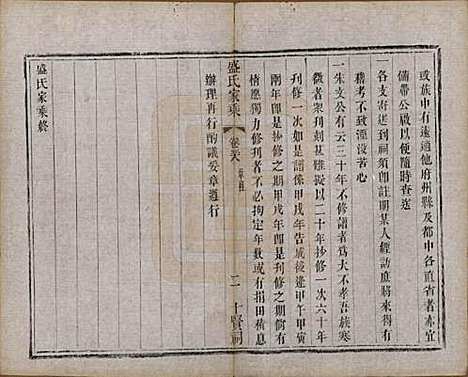 或族中有遠適他府州縣及都中各直省者亦宜
備帶公啟以便隨時查送
一各支寄送到祠須即註明某人經訪庶將來得有
稽考不致湮沒苦心
一朱文公有云三十年不修譜者為大不孝吾族寒
微者眾刊刻甚難擬以二十年抄修一次六十年
刊修一次如是譜係甲戌年告成後逢甲午甲寅
兩年即是抄修之期甲戌年即是刊修之期倘有
情愿獨力修刊者不必拘定年數或有捐田積息
辦理再行酌議妥章遵行
盛氏家乘
卷六
二
十賢祠
盛氏家乘終